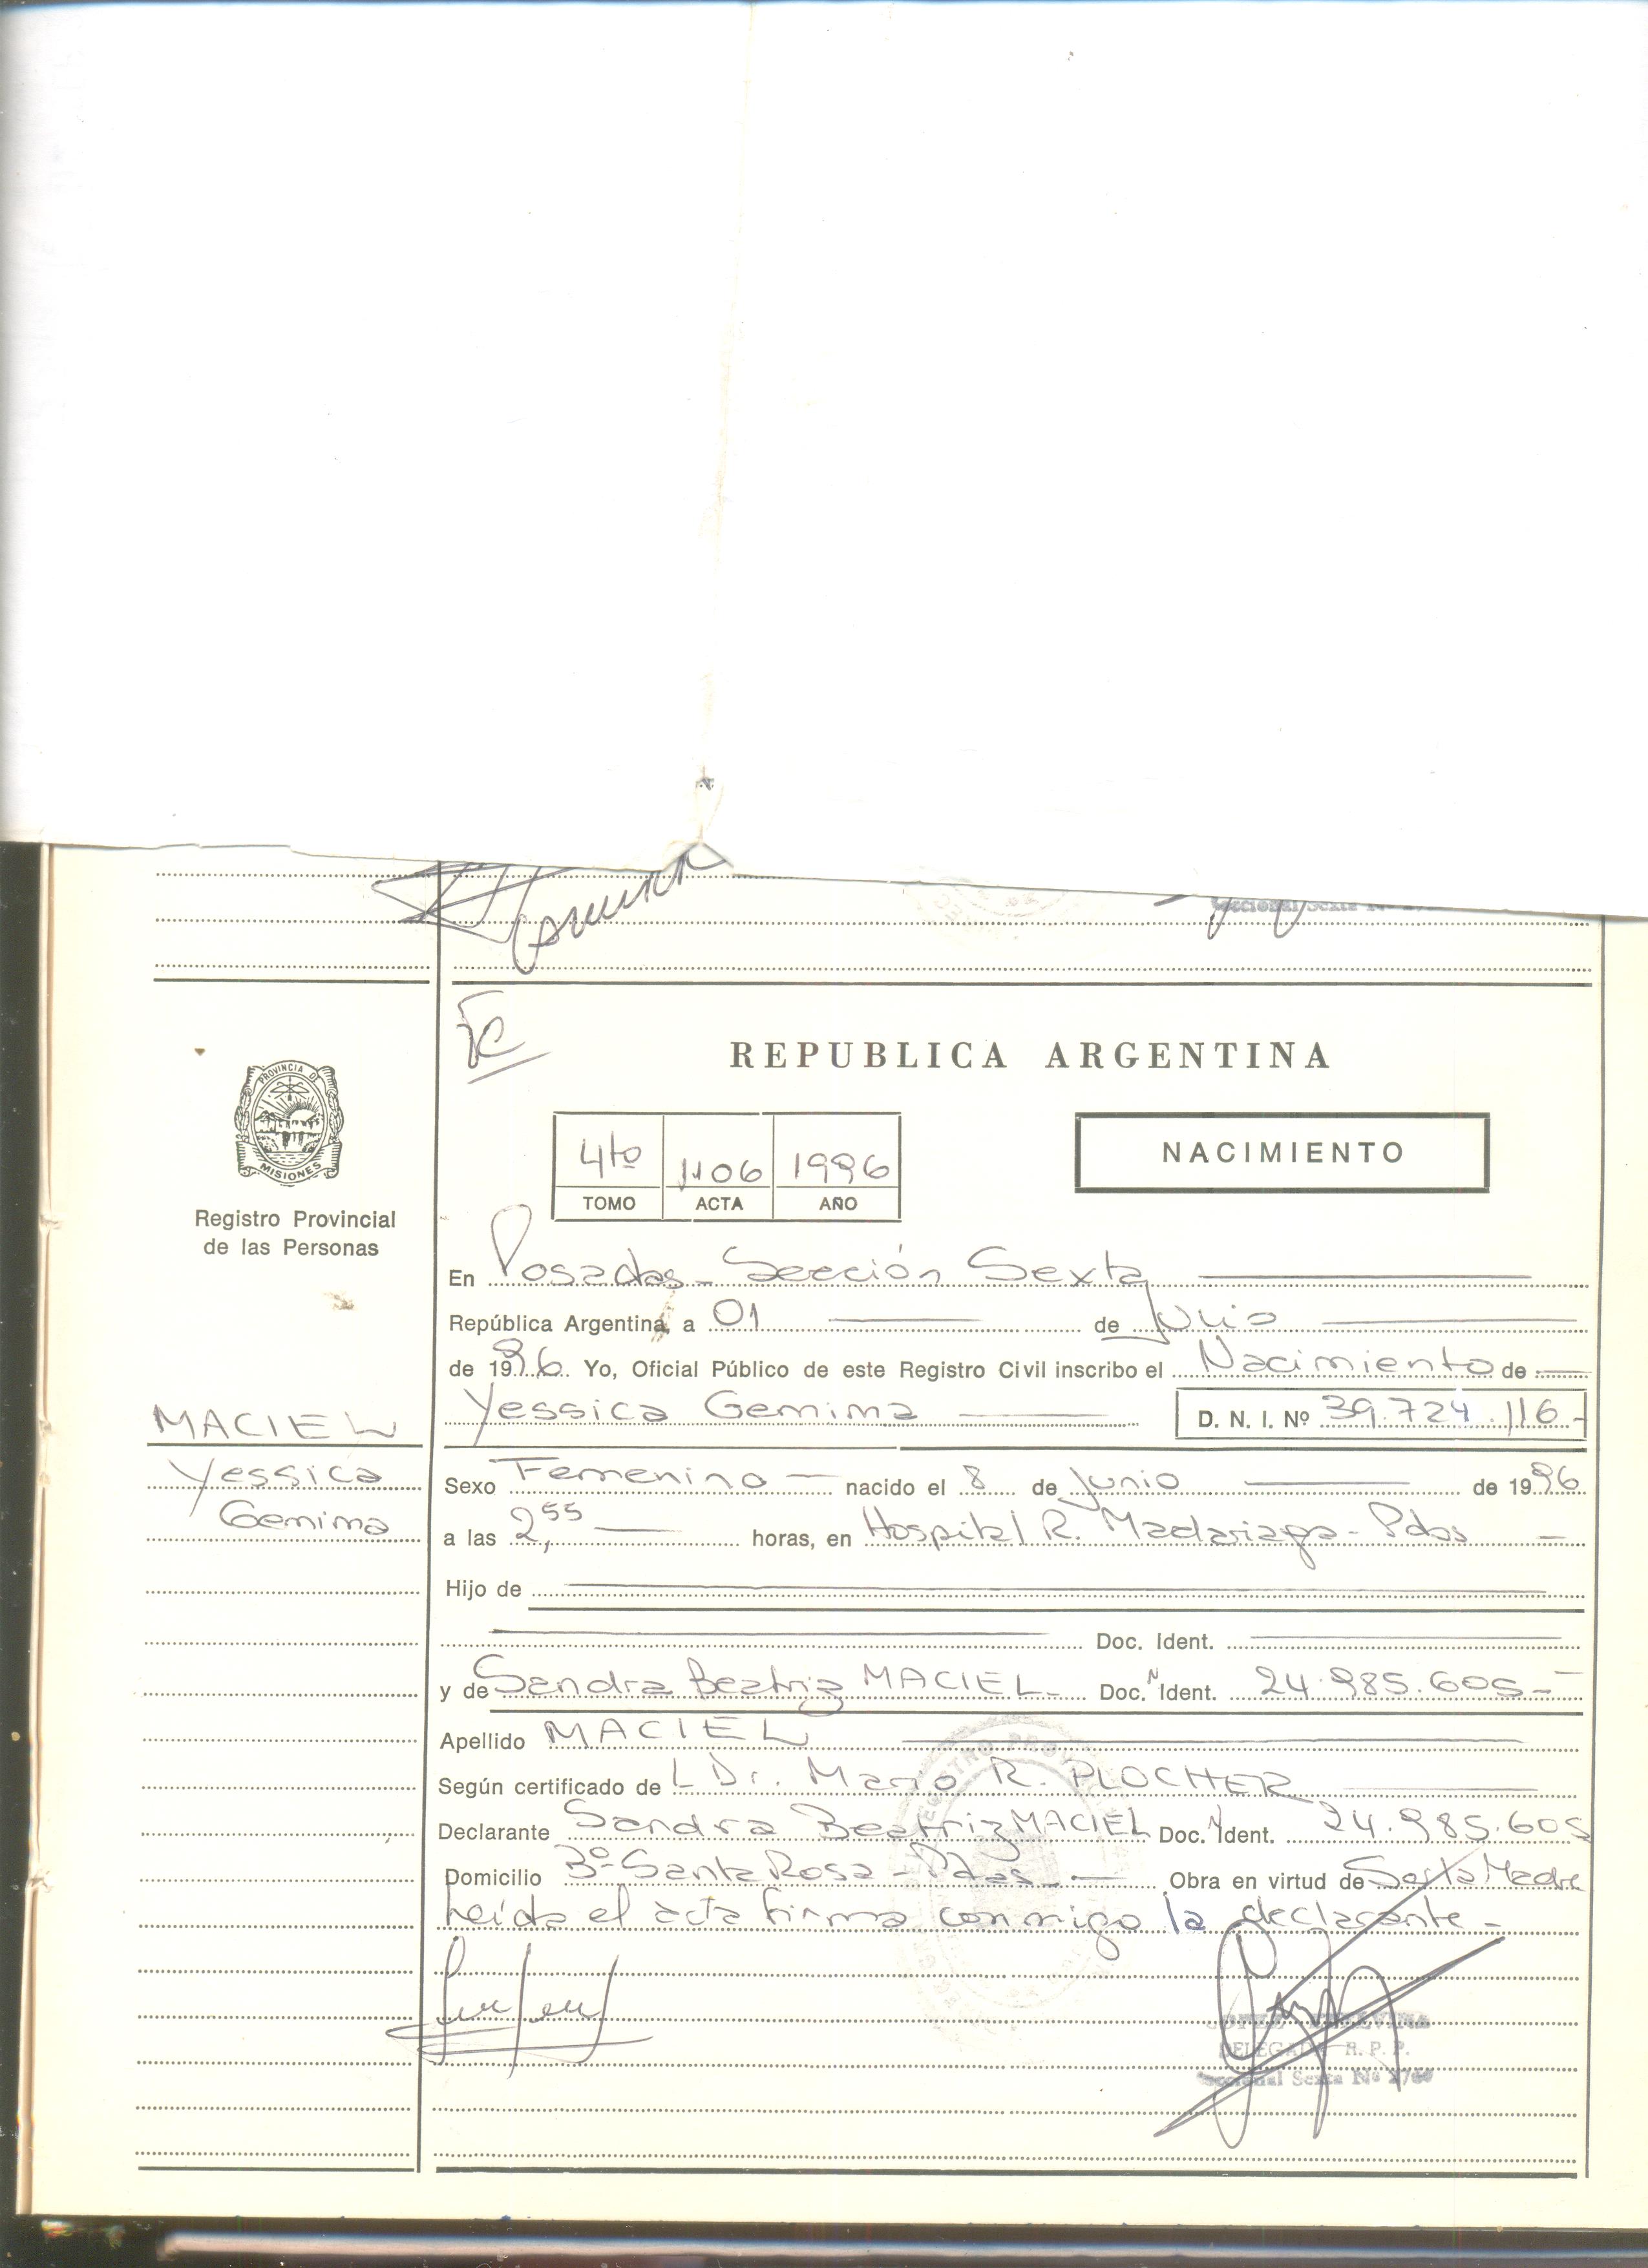 Seccional Sexta
REPUBLICA ARGENTINA
PROVINCIA DE
MISIONES
NACIMIENTO
4to 1106 1996
TOMO ACTA AÑO
Registro Provincial
de las Personas
En Posadas - Sección Sexta
República Argentina, a 01 de Julio
de 1996. Yo, Oficial Público de este Registro Civil inscribo el Nacimiento de
MACIEL
Yessica Gemima D. N. I. Nº 39.724.116-
Yessica
Gemima
Sexo Femenino nacido el 8 de Junio de 1996
a las 2,55 horas, en Hospital R. Madariaga - Pdas
Hijo de
Doc. Ident.
y de Sandra Beatriz MACIEL Doc. Ident. 24.985.605-
Apellido MACIEL
Según certificado de L Dr. Mario R. PLOCHER
Declarante Sandra Beatriz MACIEL Doc. Ident. 24.985.605
Domicilio Bº Santa Rosa - Pdas. Obra en virtud de Madre
Leída el acta firma conmigo la declarante -
DELEGADA R. P. P.
Seccional Sexta Nº